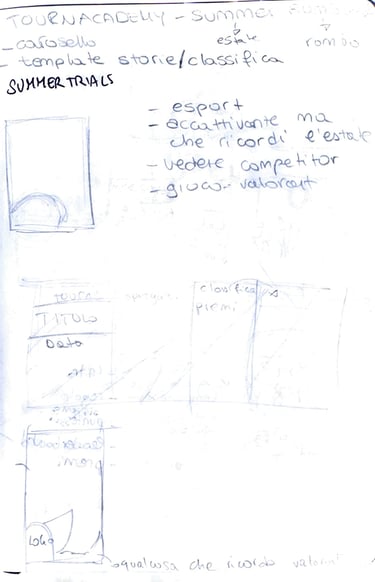 TOURNACADEMY - SUMMER
estate
rombo
- carosello
- template storie/classifica
SUMMER TRIALS
- esport
- accattivante ma
che ricordi l'estate
- vedere competitor
- gioco - valorant
classifica
premi
TITOLO
Data
LOGO
qualcosa che ricorda valorant